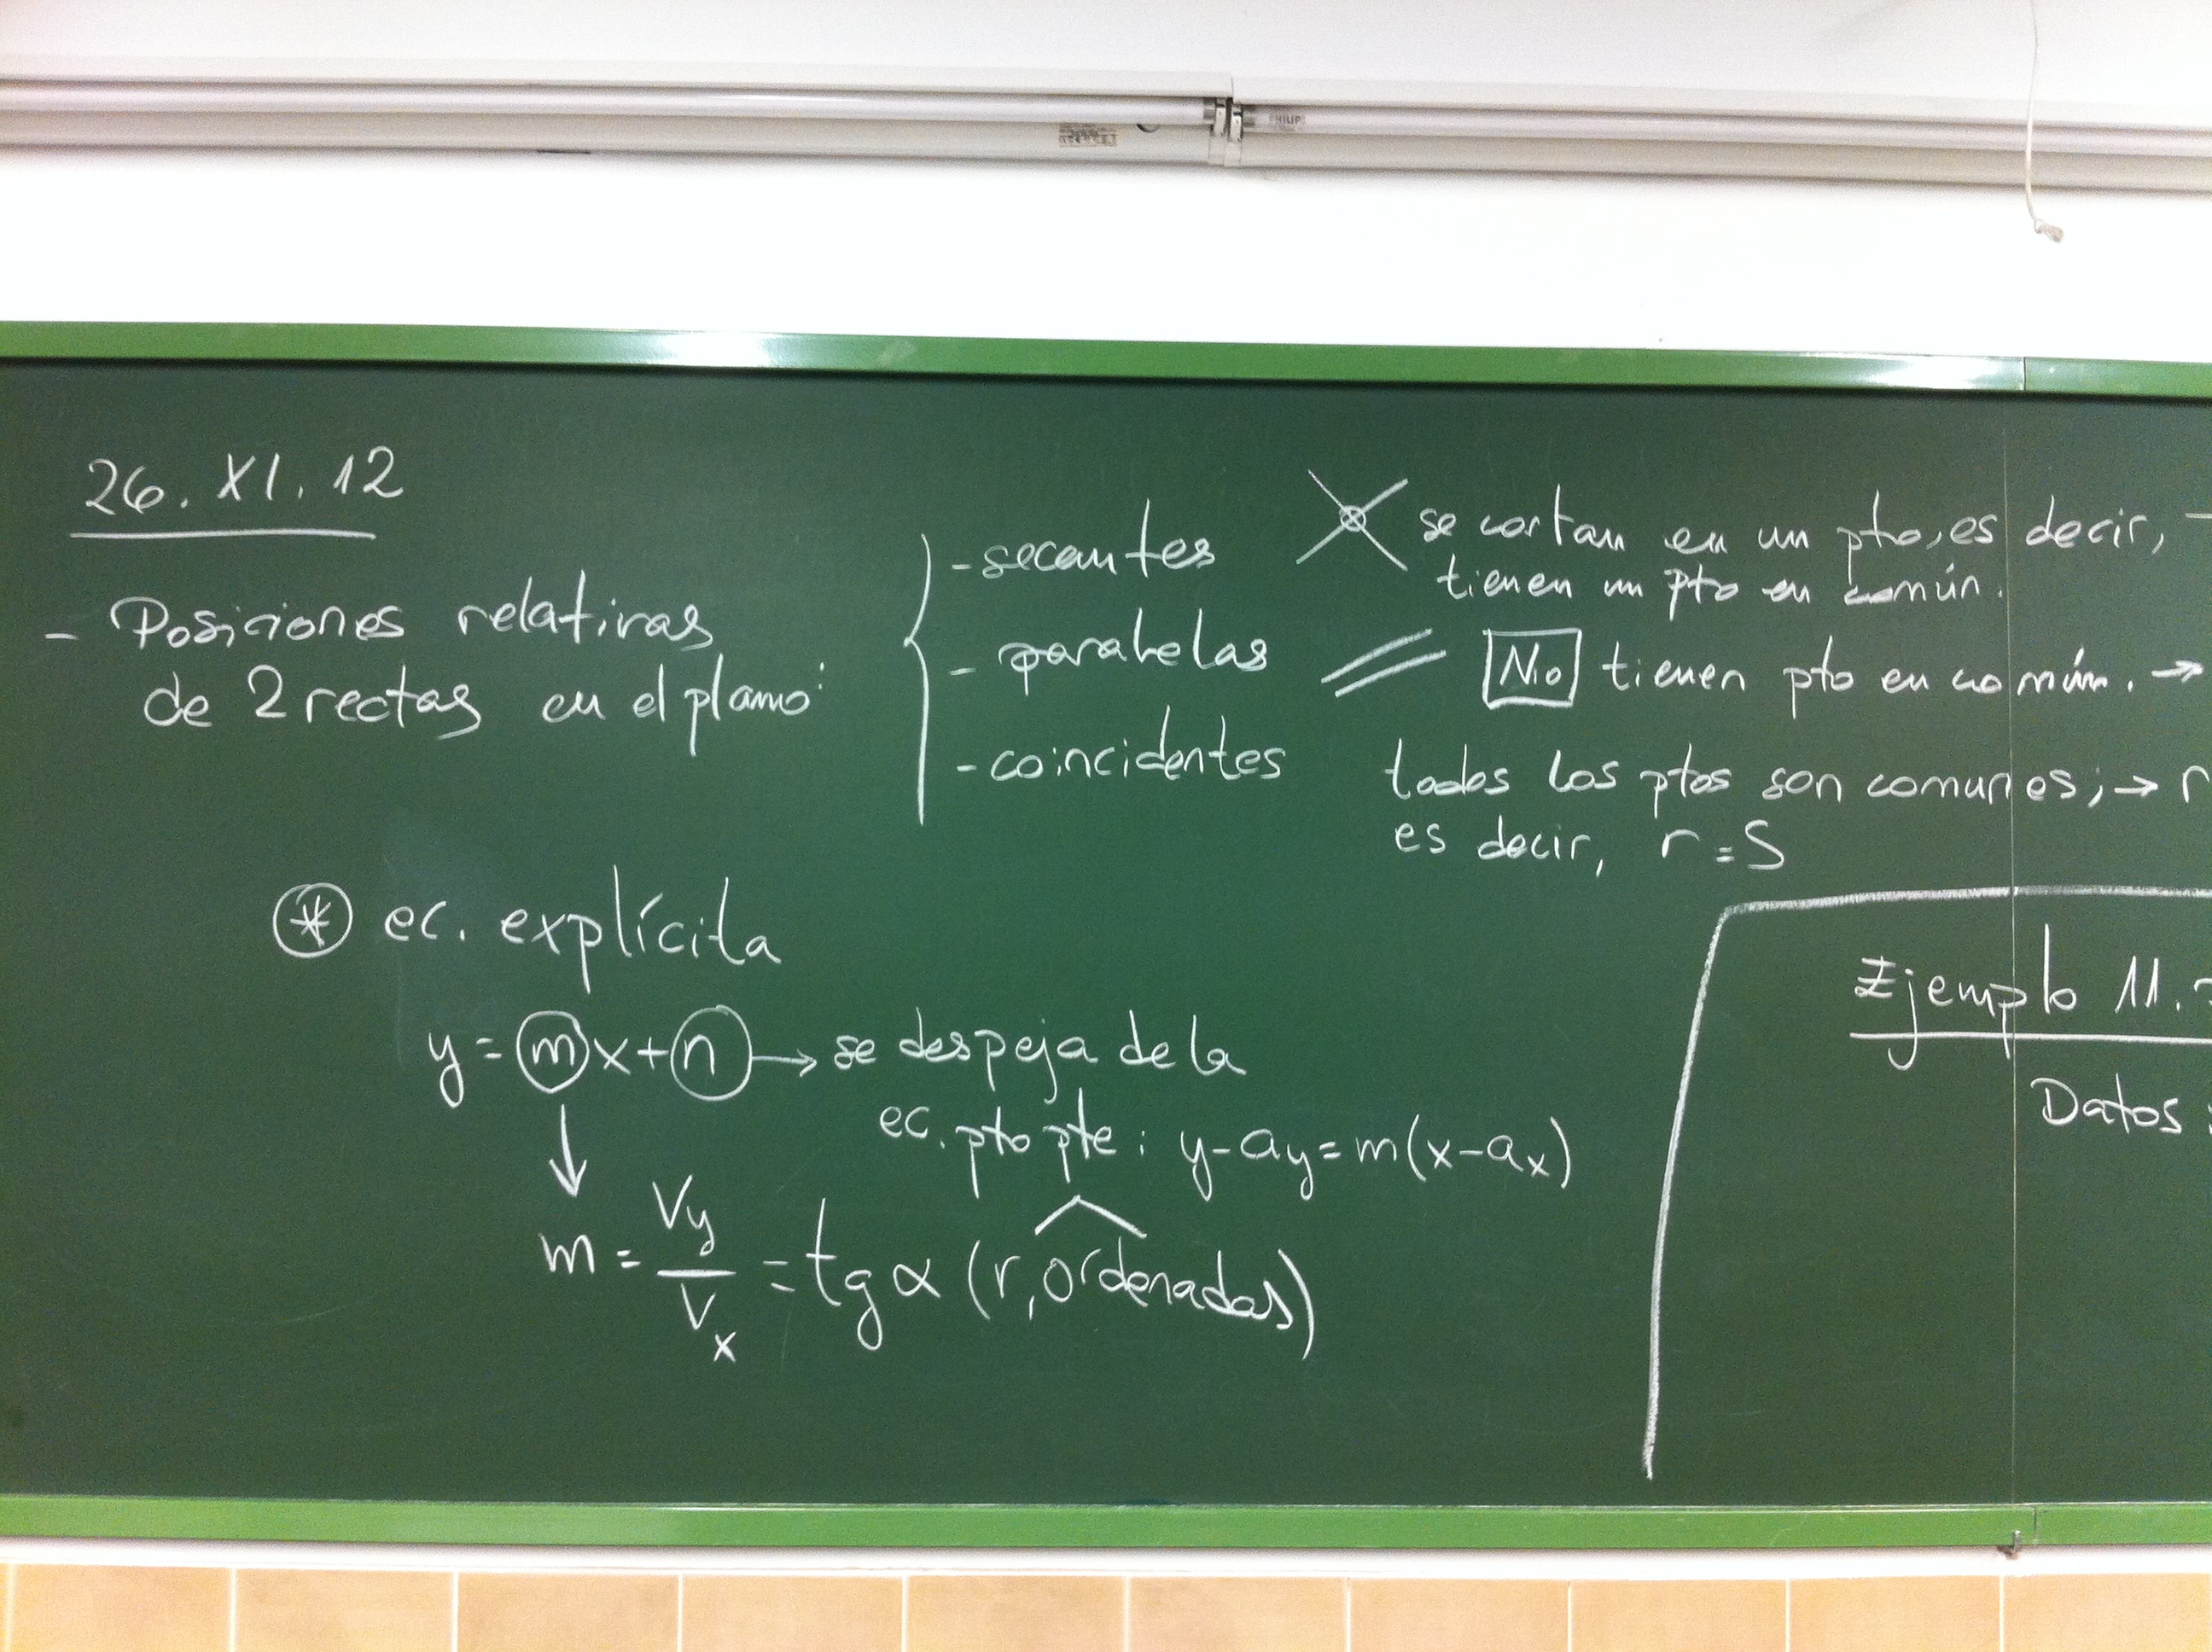 PHILIP
26. XI. 12
- Posiciones relativas
de 2 rectas en el plano:
- secantes
se cortan en un pto, es decir,
tienen un pto en común.
- paralelas
No tienen pto en común. →
- coincidentes
todos los ptos son comunes; → r
es decir, r = S
* ec. explícita
y = mx + n → se despeja de la
ec. pto pte: y - ay = m(x - ax)
m = Vy/Vx = tg α (r, ordenadas)
Ejemplo 11.
Datos: